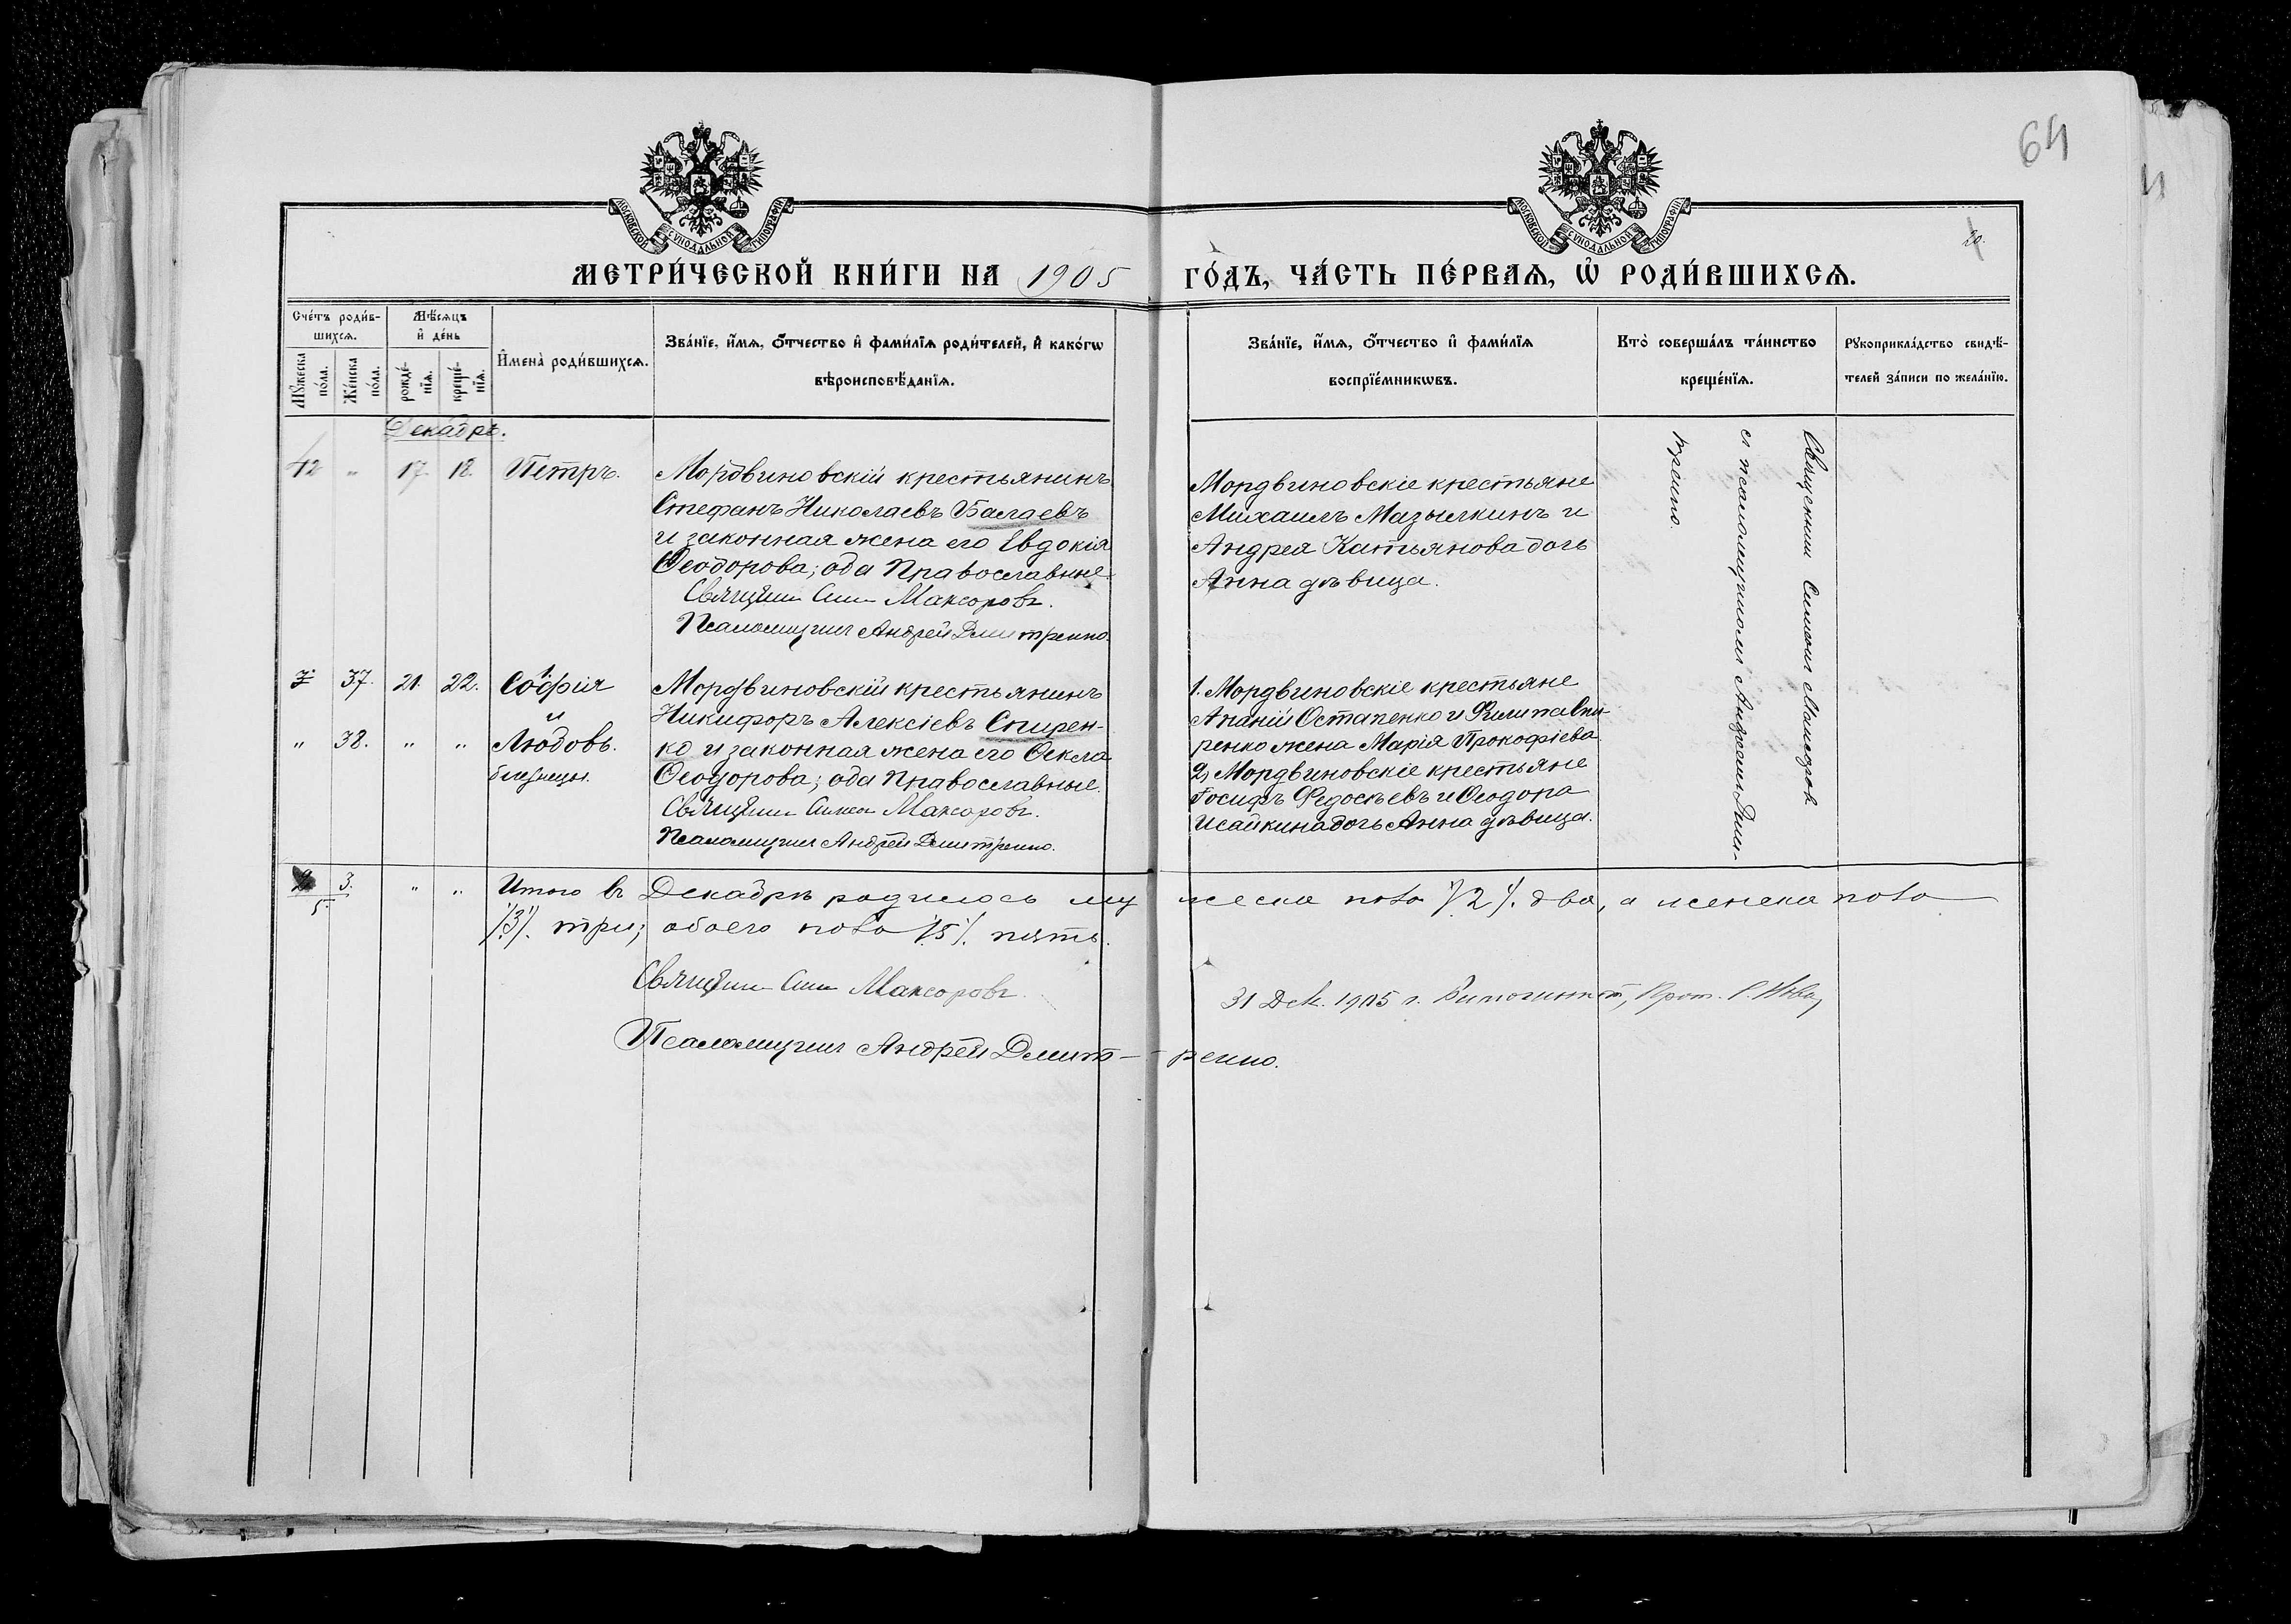 64
20.
МОСКОВСКОЙ СѴНОДАЛЬНОЙ ТИПОГРАФІИ
МОСКОВСКОЙ СѴНОДАЛЬНОЙ ТИПОГРАФІИ
МЕТРИ́ЧЕСКОЙ КНИ́ГИ НА 1905 ГО́ДЪ, ЧА́СТЬ ПЕ́РВАѦ, Ѡ҆ РОДИ́ВШИХСѦ.
Сче́тъ роди́в-
шихсѧ.
Мꙋ́жеска по́ла.
Же́нска по́ла.
Мѣ́сѧцъ
и҆ де́нь
рожде́-
нїѧ.
креще́-
нїѧ.
И҆мена̀ роди́вшихсѧ.
Зва́нїе, и҆́мѧ, ѻ҆́тчество и҆ фами́лїѧ роди́телей, и҆ како́гѡ
вѣроисповѣ́данїѧ.
Зва́нїе, и҆́мѧ, ѻ҆́тчество и҆ фами́лїѧ
воспрїе́мникѡвъ.
Кто̀ соверша́лъ та́инство
креще́нїѧ.
Рꙋкоприкла́дство свидѣ́-
телей за́писи по жела́нїю.
Декабрь.
42 " 17. 18. Петръ.
Мордвиновскій крестьянинъ
Стефанъ Николаевъ Балаевъ
и законная жена его Евдокія
Ѳеодорова; оба Православные.
Священ. Сим. Максоровъ.
Псаломщикъ Андрей Дмитренко.
Мордвиновскіе крестьяне
Михаилъ Мазылкинъ и
Андрея Катьянова дочь
Анна дѣвица.
Священникъ Симеонъ Максоровъ
съ псаломщикомъ Андреемъ Дми-
тренко.
37. 21. 22. Софія
и
" 38. " " Любовь.
близнецы.
Мордвиновскій крестьянинъ
Никифоръ Алексіевъ Спирен-
ко и законная жена его Ѳекла
Ѳеодорова; оба Православные.
Священ. Симеон Максоровъ.
Псаломщикъ Андрей Дмитренко.
1. Мордвиновскіе крестьяне
Ананій Остапенко и Филипа Спи-
ренко жена Марія Прокофіева
2, Мордвиновскіе крестьяне
Іосифъ Федосѣевъ и Ѳеодора
Исайкина дочь Анна дѣвица.
2 3. " " Итого въ Декабрѣ родилось мужеска пола /2/. два, а женска пола
5. /3/. три; обоего пола /5/. пять.
Священ. Сим. Максоровъ.
Псаломщикъ Андрей Дмит-ренко.
31 Дек. 1905 г. Прот.